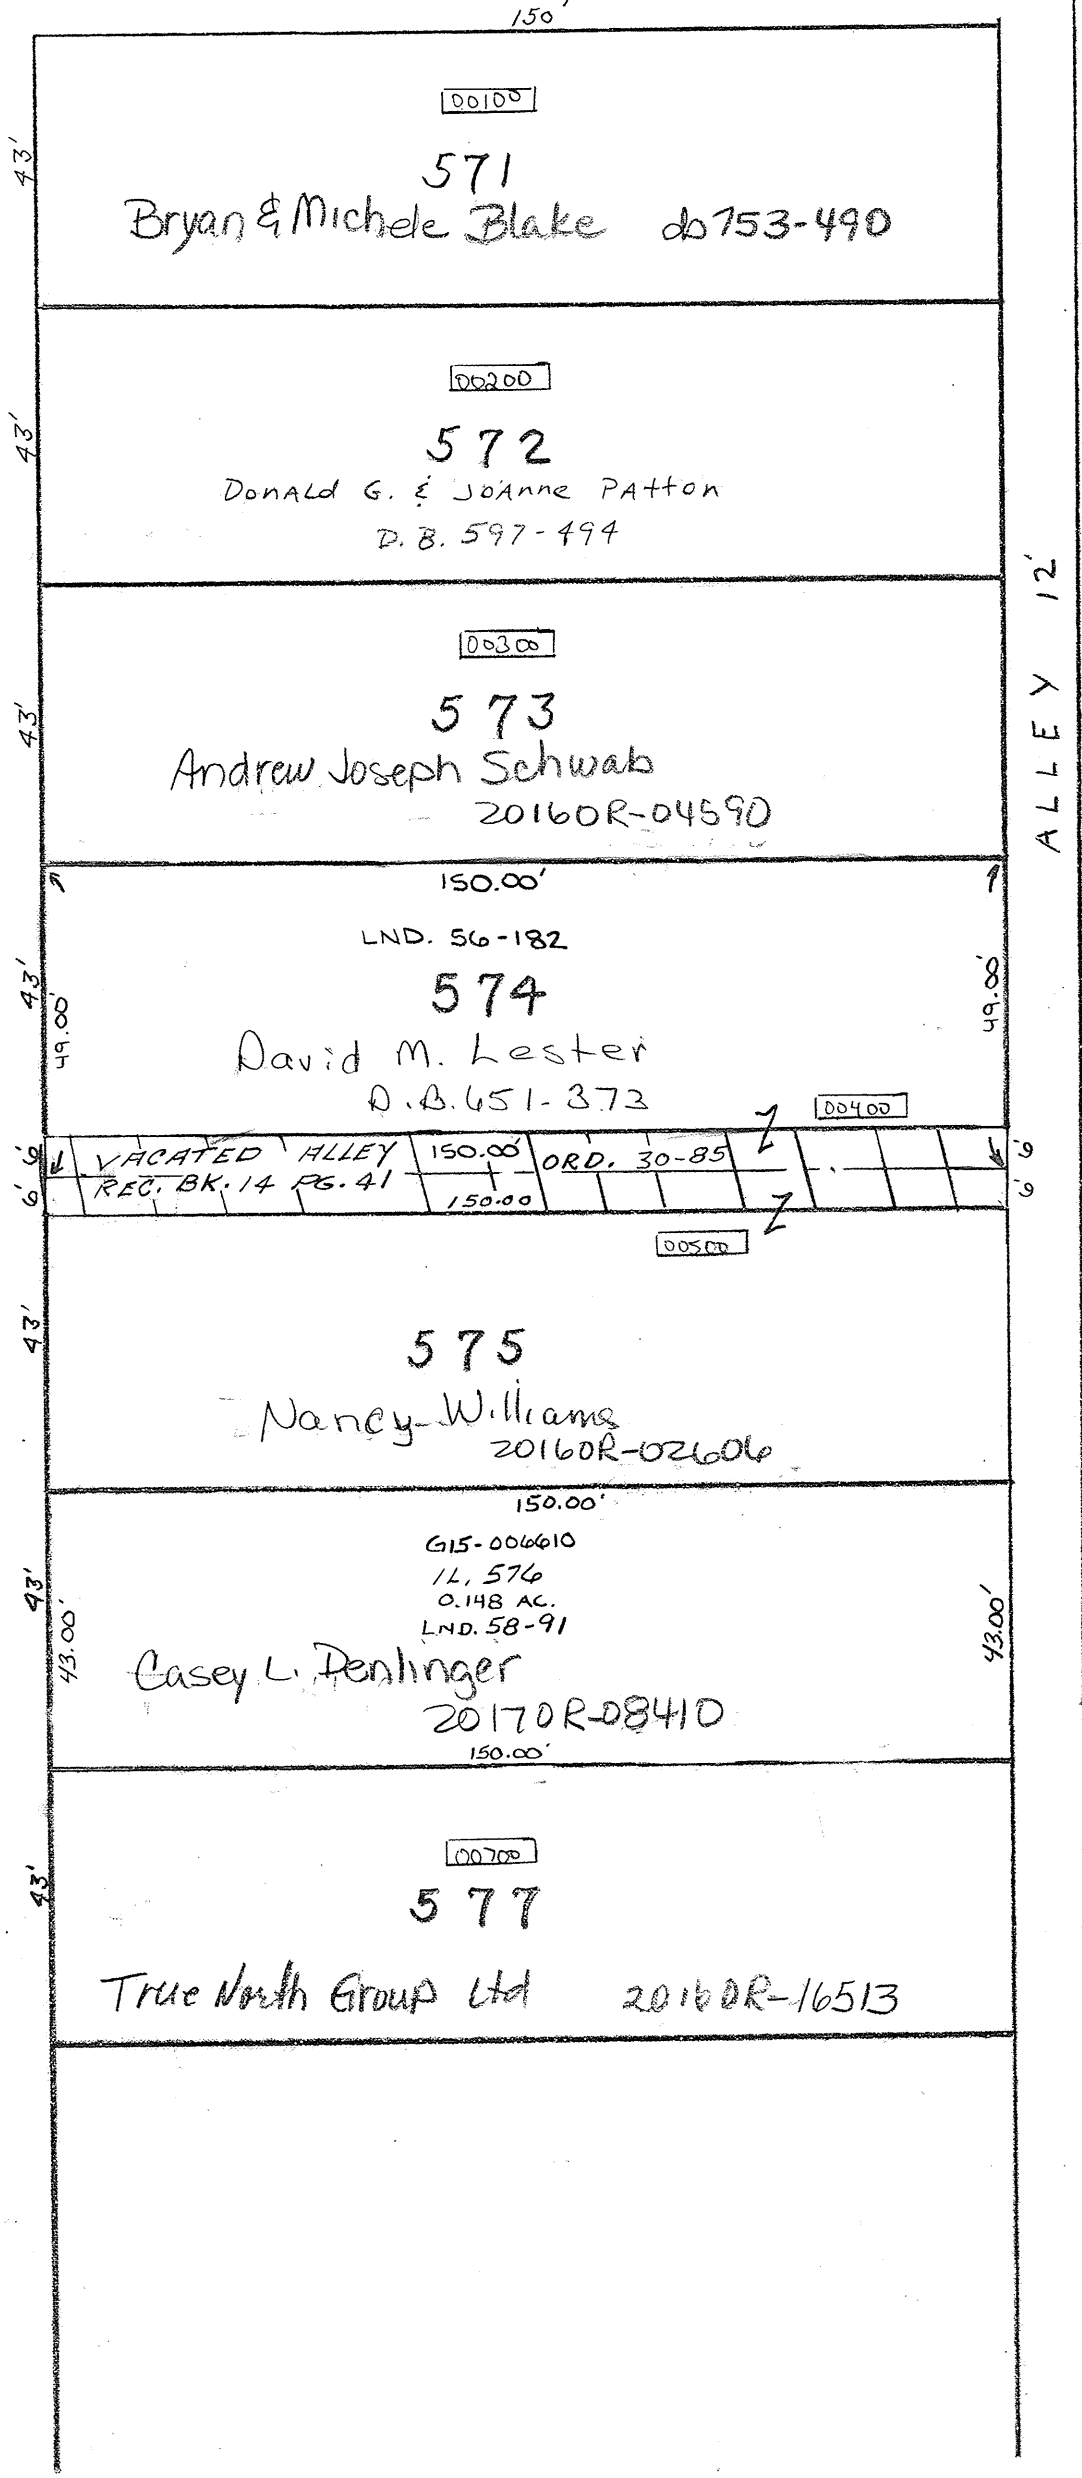 150'
00100
43'
571
Bryan & Michele Blake db753-490
00200
43'
572
Donald G. & JoAnne Patton
D.B. 597-494
ALLEY 12'
00300
43'
573
Andrew Joseph Schwab
2016OR-04590
150.00'
LND. 56-182
43'
49.00'
574
49.00'
David M. Lester
D.B. 651-373
00400
6' VACATED ALLEY 150.00' ORD. 30-85 6'
6' REC. BK. 14 PG. 41 150.00 6'
00500
43'
575
Nancy Williams
2016OR-02606
150.00'
G15-006610
IL. 576
0.148 AC.
LND. 58-91
43'
43.00'
43.00'
Casey L. Denlinger
2017OR-08410
150.00'
00700
43'
577
True North Group Ltd 2016OR-16513